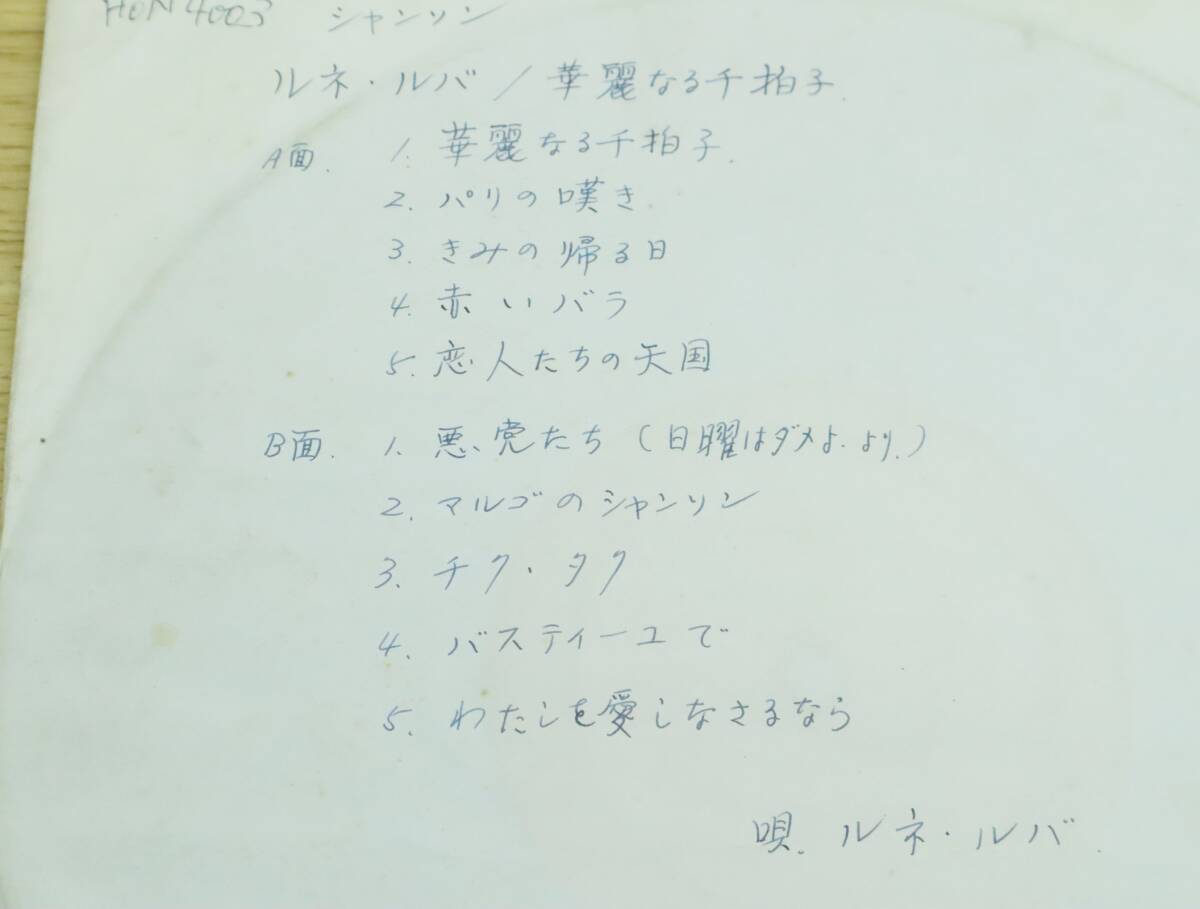 HON 4003 シャンソン
ルネ・ルバ / 華麗なる千拍子.
A面. 1. 華麗なる千拍子.
2. パリの嘆き
3. きみの帰る日
4. 赤いバラ
5. 恋人たちの天国
B面. 1. 悪党たち (日曜はダメよ.より.)
2. マルゴのシャンソン
3. チク・タク
4. バスティーユで
5. わたしを愛しなさるなら
唄. ルネ・ルバ.